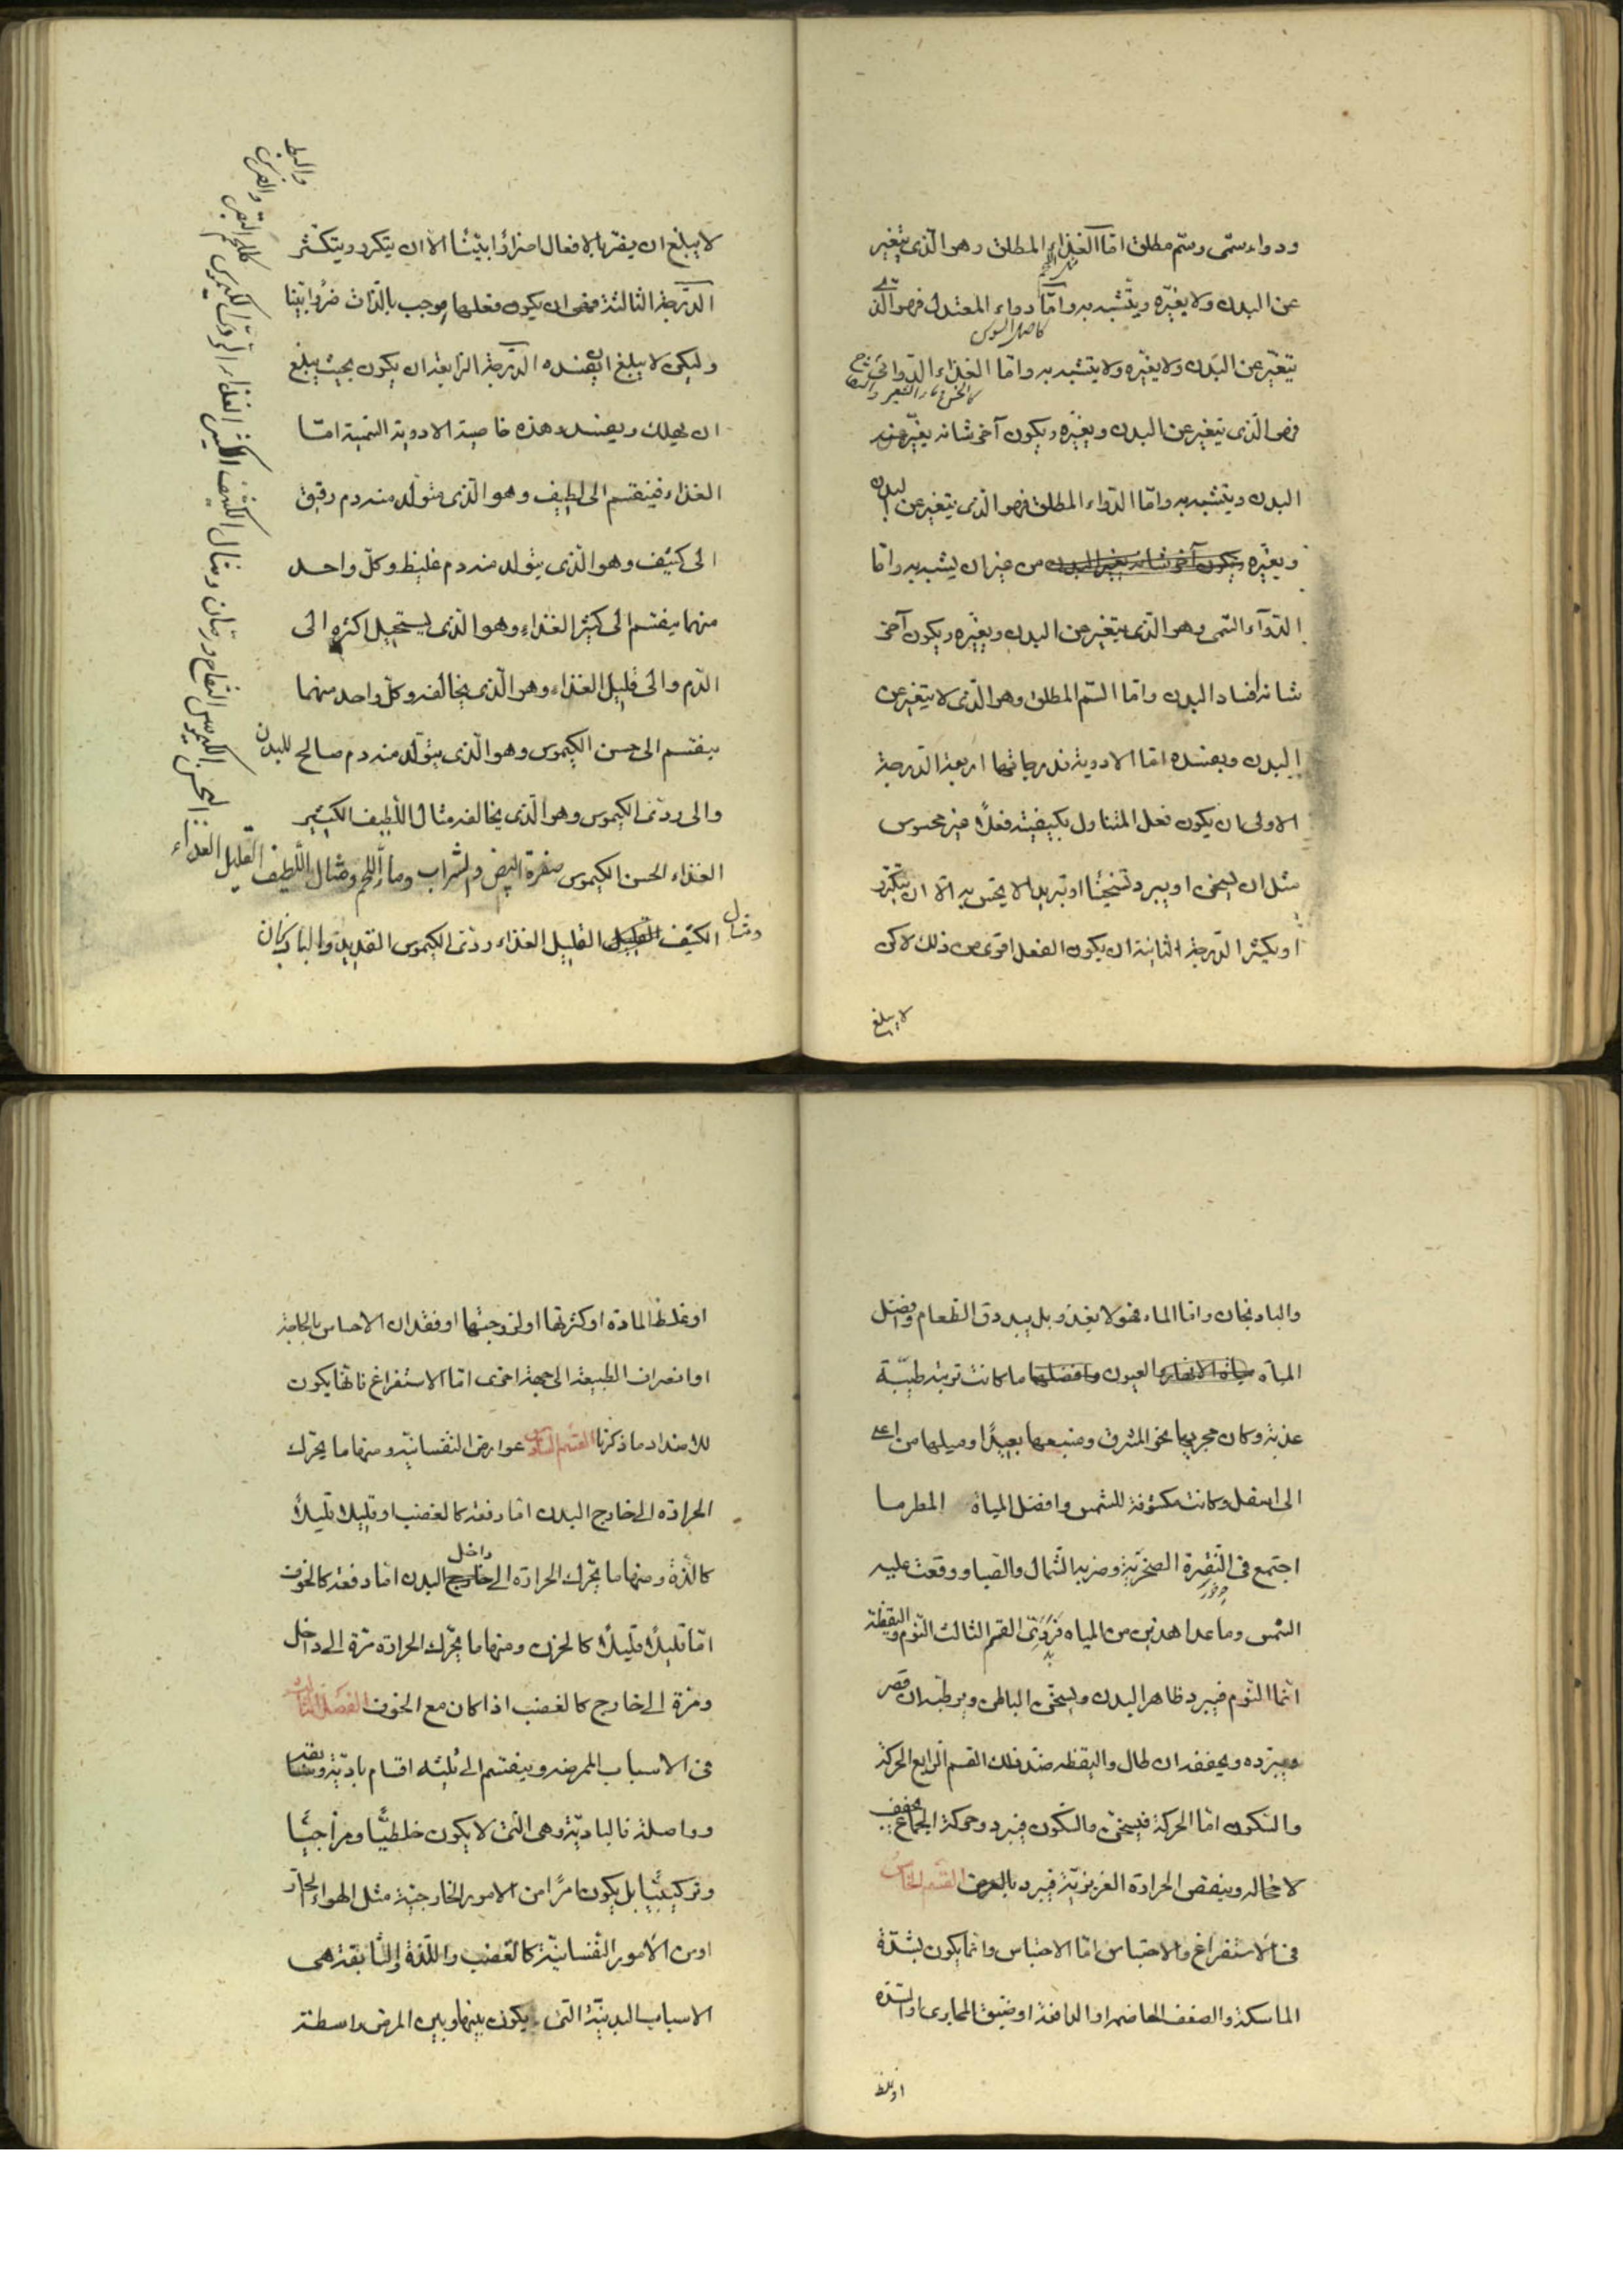 ودواء سمّى وسّم مطلق امّا الغذاء المطلق وهو الّذى يتغير
عن البدن ولا يغيّره ويتشبه به وامّا دواء المعتدل فهو الّذى
كاصل السوس
يتغيّر عن البدن ولا يغيّره ولا يتشبه به وامّا الغذاء الدّوائى
فهو الّذى يتغير عن البدن ويغيّره ويكون آخر شانه يغيّر
البدن ويتشبه به وامّا الدّواء المطلق فهو الّذى يتغير عن البدن
ويغيّره ويكون آخر شانه يغير البدن من غير ان يشبه به وامّا
الدّوآء السّمى وهو الّذى يتغير عن البدن ويغيّره ويكون آخر
شانه افساد البدن وامّا السّم المطلق وهو الّذى لا يتغير عن
البدن ويفسده امّا الادوية فدرجاتها اربعة الدّرجة
الاولى ان يكون فعل المتناول بكيفيته فعلًا غير محسوس
مثل ان يسخن او يبرد تسخينًا او تبريدا لا يحسّ به الّا ان يتكرّر
او يكثر الدّرجة الثانية ان يكون الفعل اقوى من ذلك لاكن
لا يبلغ
لا يبلغ ان يضرّ بالافعال اضرارًا بيّنًا الا ان يتكرر ويتكثر
الدّرجة الثالثة فهى ان يكون فعلها موجب بالذّات ضررًا بيّنا
وليكن لا يبلغ ان يفسده الدّرجة الرّابعة ان يكون بحيث يبلغ
ان يهلك ويفسد وهذه خاصية الادوية السّمية امّا
الغذاء فينقسم الى لطيف وهو الّذى يتولّد منه دم رقيق
الى كثيف وهو الّذى يتولد منه دم غليظ وكلّ واحد
منهما ينقسم الى كثير الغذاء وهو الذى يستحيل اكثره الى
الدّم والى قليل الغذاء وهو الّذى يخالفه وكلّ واحد منهما
ينقسم الى حسن الكيموس وهو الّذى يتولّد منه دم صالح للبدن
والى ردئ الكيموس وهو الّذى يخالفه مثال اللّطيف الكثير
الغذاء الحسن الكيموس صفرة البيض والشراب وماء اللّحم ومثال اللّطيف القليل الغذاء
الحسن الكيموس التفاح ورمّان ومثال الكثيف الكثير الغذاء الردئ الكيموس كلحم البقر
والبط
ومثال الكثيف القليل القليل الغذاء ردئ الكيموس القديد والباذنجان
والبادنجان وامّا الماء فهو لا يغذو بل يبدرق الطعام وافضل
المياه مياه الانهار العيون وافضلها ما كانت تربته طيّبة
عذبة وكان مجريها نحو المشرق ومنبعها بعيدًا وميلها من اعلى
الى اسفل وكانت مكشوفة للشمس وافضل المياه المطر ما
اجتمع فى النّقرة الصخريّة وضربه الشّمال والصّبا ووقعت عليه
الشمس وما عدا هذين من المياه فردىّ القسم الثالث النّوم واليقظة
امّا النّوم فيبرد ظاهر البدن ويسخن الباطن ويرطبه ان قصر
ويبرّده ويجففه ان طال واليقظه ضدّ ذلك القسم الرابع الحركة
والسّكون امّا الحركة فيسخن والسّكون فيبرد وحركة الجماع يجفف
لا محالة وينقص الحرارة الغريزيّة فيبرد بالعرض القسم الخامس
فى الاستفراغ والاحتباس امّا الاحتباس وانّما يكون لشدّة
الماسكة والضعف الهاضمه او الدافعة او ضيق المجارى او السّدّه
او غلظ
او غلظ المادة او كثرتها او لزوجتها او فقدان الاحساس بالحاجة
او انصراف الطبيعة الى جهة اخرى امّا الاستفراغ فانّها يكون
للاضداد ما ذكرنا القسم السادس عوارض النّفسانيّه ومنها ما يحرّك
الحرارة الى خارج البدن امّا دفعة كالغضب او قليلا قليلاً
كالذّة ومنها ما يحرّك الحرارة الى خارج داخل البدن امّا دفعة كالخوف
امّا قليلًا قليلًا كالحزن ومنها ما يحرّك الحرارة مرّة الى داخل
ومرّة الى خارج كالغضب اذا كان مع الخوف الفصل الثالث
فى الاسباب الممرضه وينقسم الى ثلثه اقسام باديّة وسابقة
وواصلة فالباديّة وهى الّتى لا يكون خلطيًّا ومزاجيًّا
وتركيبيًّا بل يكون امرًا من الامور الخارجيّة مثل الهواء الحارّ
او من الامور النّفسانيّة كالغضب واللّذة والسّابقة هى
الاسباب البدنيّة الّتى يكون بينها وبين المرض واسطة